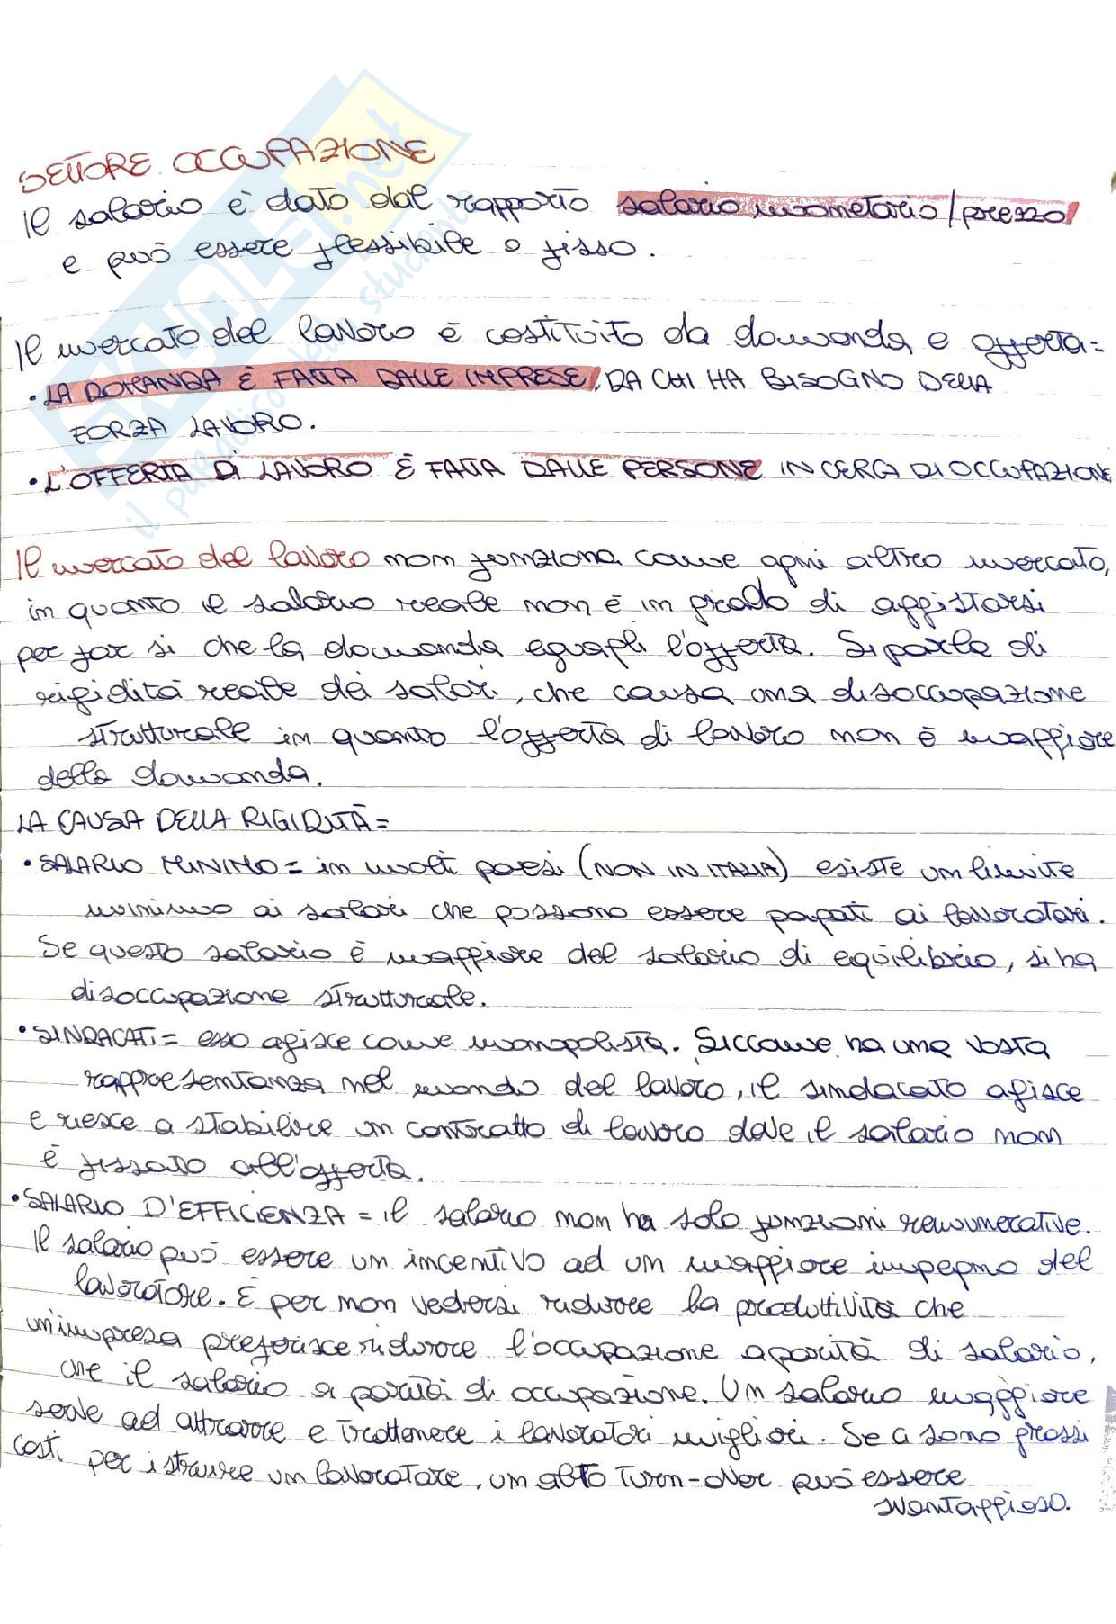 SETTORE OCCUPAZIONE
Il salario è dato dal rapporto salario monetario/prezzo
e può essere flessibile o fisso.
Il mercato del lavoro è costituito da domanda e offerta=
• LA DOMANDA È FATTA DALLE IMPRESE, DA CHI HA BISOGNO DELLA
FORZA LAVORO.
• L'OFFERTA DI LAVORO È FATTA DALLE PERSONE IN CERCA DI OCCUPAZIONE
Il mercato del lavoro non funziona come ogni altro mercato,
in quanto il salario reale non è in grado di aggiustarsi
per far si che la domanda eguagli l'offerta. Si parla di
rigidità reale dei salari, che causa una disoccupazione
strutturale in quanto l'offerta di lavoro non è maggiore
della domanda.
LA CAUSA DELLA RIGIDITÀ=
• SALARIO MINIMO = in molti paesi (NON IN ITALIA) esiste un limite
minimo ai salari che possono essere pagati ai lavoratori.
Se questo salario è maggiore del salario di equilibrio, si ha
disoccupazione strutturale.
• SINDACATI = esso agisce come monopolista. Siccome ha una vasta
rappresentanza nel mondo del lavoro, il sindacato agisce
e riesce a stabilire un contratto di lavoro dove il salario non
è fissato all'offerta.
• SALARIO D'EFFICIENZA = il salario non ha solo funzioni remunerative.
Il salario può essere un incentivo ad un maggiore impegno del
lavoratore. E per non vedersi ridurre la produttività che
un'impresa preferisce ridurre l'occupazione a parità di salario,
che il salario a parità di occupazione. Un salario maggiore
serve ad attrarre e trattenere i lavoratori migliori. Se ci sono grossi
costi per istruire un lavoratore, un alto turn-over può essere
svantaggioso.